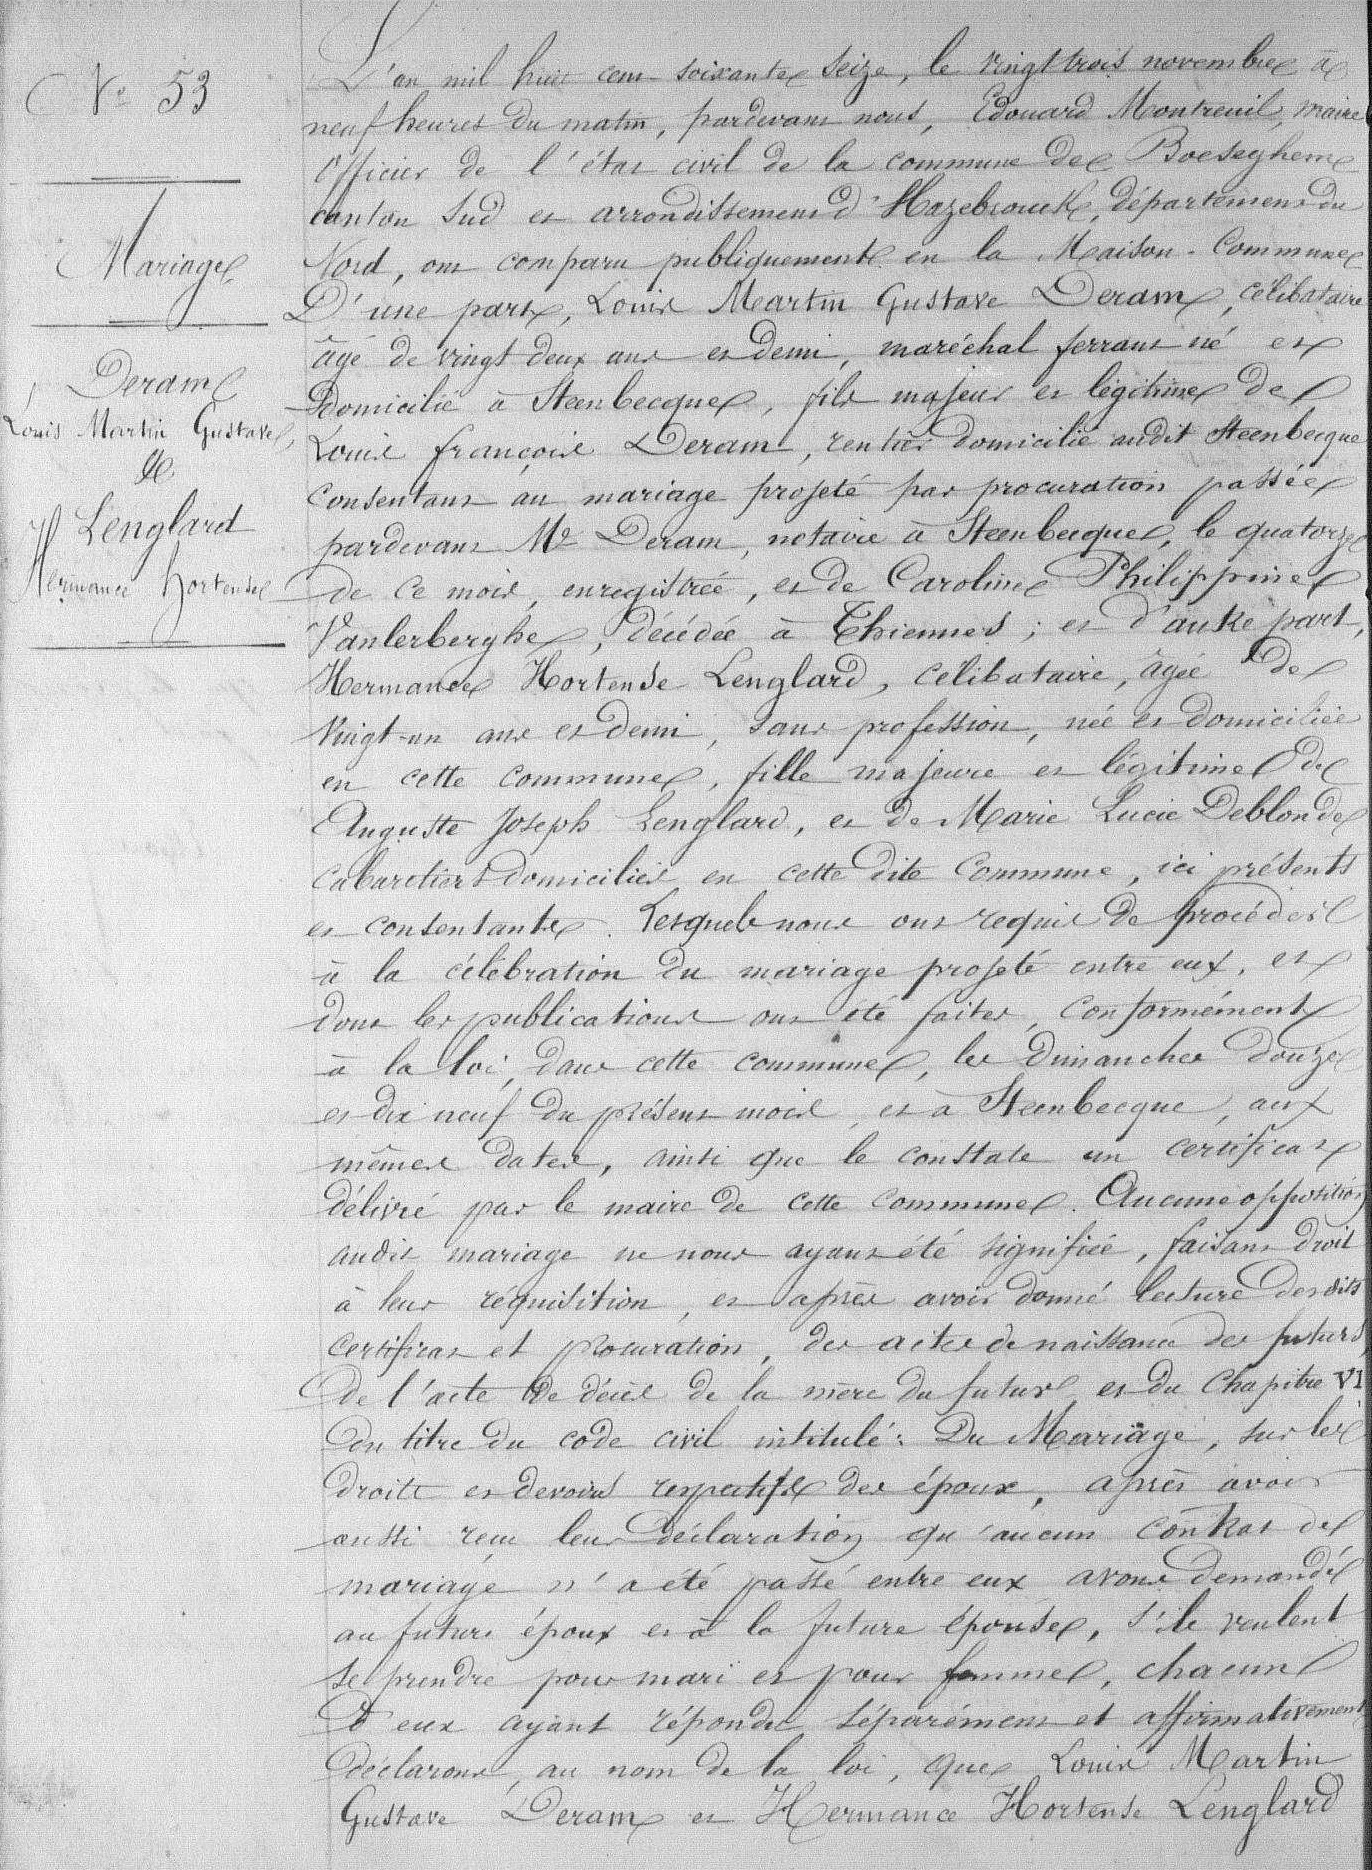 N° 53
Mariage
Deram
Louis Martin Gustave,
&
Lenglard
Hermance Hortense
L'an mil huit cent soixante seize, le vingt trois novembre à
neuf heures du matin, pardevant nous, Edouard Montreuil, maire
officier de l'état civil de la commune de Boeseghem
canton Sud et arrondissement d'Hazebrouck, département du
Nord, ont comparu publiquement en la Maison-Commune
D'une part, Louis Martin Gustave Deram, célibataire
âgé de vingt deux ans et demi, maréchal ferrant né et
domicilié à Steenbecque, fils majeur et légitime de
Louis françois Deram, rentier domicilié audit Steenbecque
consentant au mariage projeté par procuration passée
pardevant Me Deram, notaire à Steenbecque, le quatorze
de ce mois, enregistrée, et de Caroline Philippine
Vanlerberghe, décédée à Thiennes ; et d'autre part,
Hermance Hortense Lenglard, célibataire, âgée de
vingt-un ans et demi, sans profession, née et domiciliée
en cette commune, fille majeure et légitime de
Auguste Joseph Lenglard, et de Marie Lucie Deblonde
cabaretiers domiciliés en cette dite commune, ici présents
et consentants. Lesquels nous ont requis de procéder
à la célébration du mariage projeté entre eux, et
dont les publications ont été faites, conformément
à la loi, dans cette commune, les dimanches douze
et dix neuf du présent mois et à Steenbecque, aux
mêmes dates, ainsi que le constate un certificat
délivré par le maire de cette commune. Aucune opposition
audit mariage ne nous ayant été signifiée, faisant droit
à leur réquisition, et après avoir donné lecture desdits
certificat et procuration, des actes de naissance des futurs
de l'acte de décès de la mère du futur et du Chapitre VI
du titre du code civil intitulé : Du Mariage, sur les
droits et devoirs respectifs des époux, après avoir
aussi reçu leur déclaration qu'aucun contrat de
mariage n'a été passé entre eux avons demandé
au futur époux et à la future épouse, s'ils veulent
se prendre pour mari et pour femme, chacun
d'eux ayant répondu séparément et affirmativement
déclarons, au nom de la loi, que Louis Martin
Gustave Deram et Hermance Hortense Lenglard